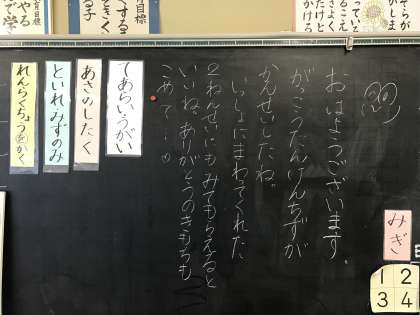 おはようございます。
がっこうたんけんちずが
かんせいしたね。
いっしょにまわてくれた
2ねんせいにもみてもらえると
いいね。ありがとうのきもちも
こめて…
てあらい、うがい
あさのしたく
といれ・みずのみ
れんらくちょうをかく
みぎ
1 2
3 4